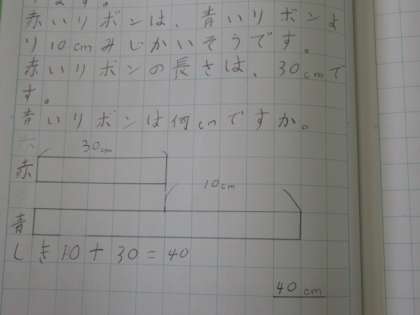 ます。
赤いリボンは、青いリボンよ
り10cmみじかいそうです。
赤いリボンの長さは、30cmで
す。
青いリボンは何cmですか。
30cm
赤
10cm
青
しき10+30=40
40cm